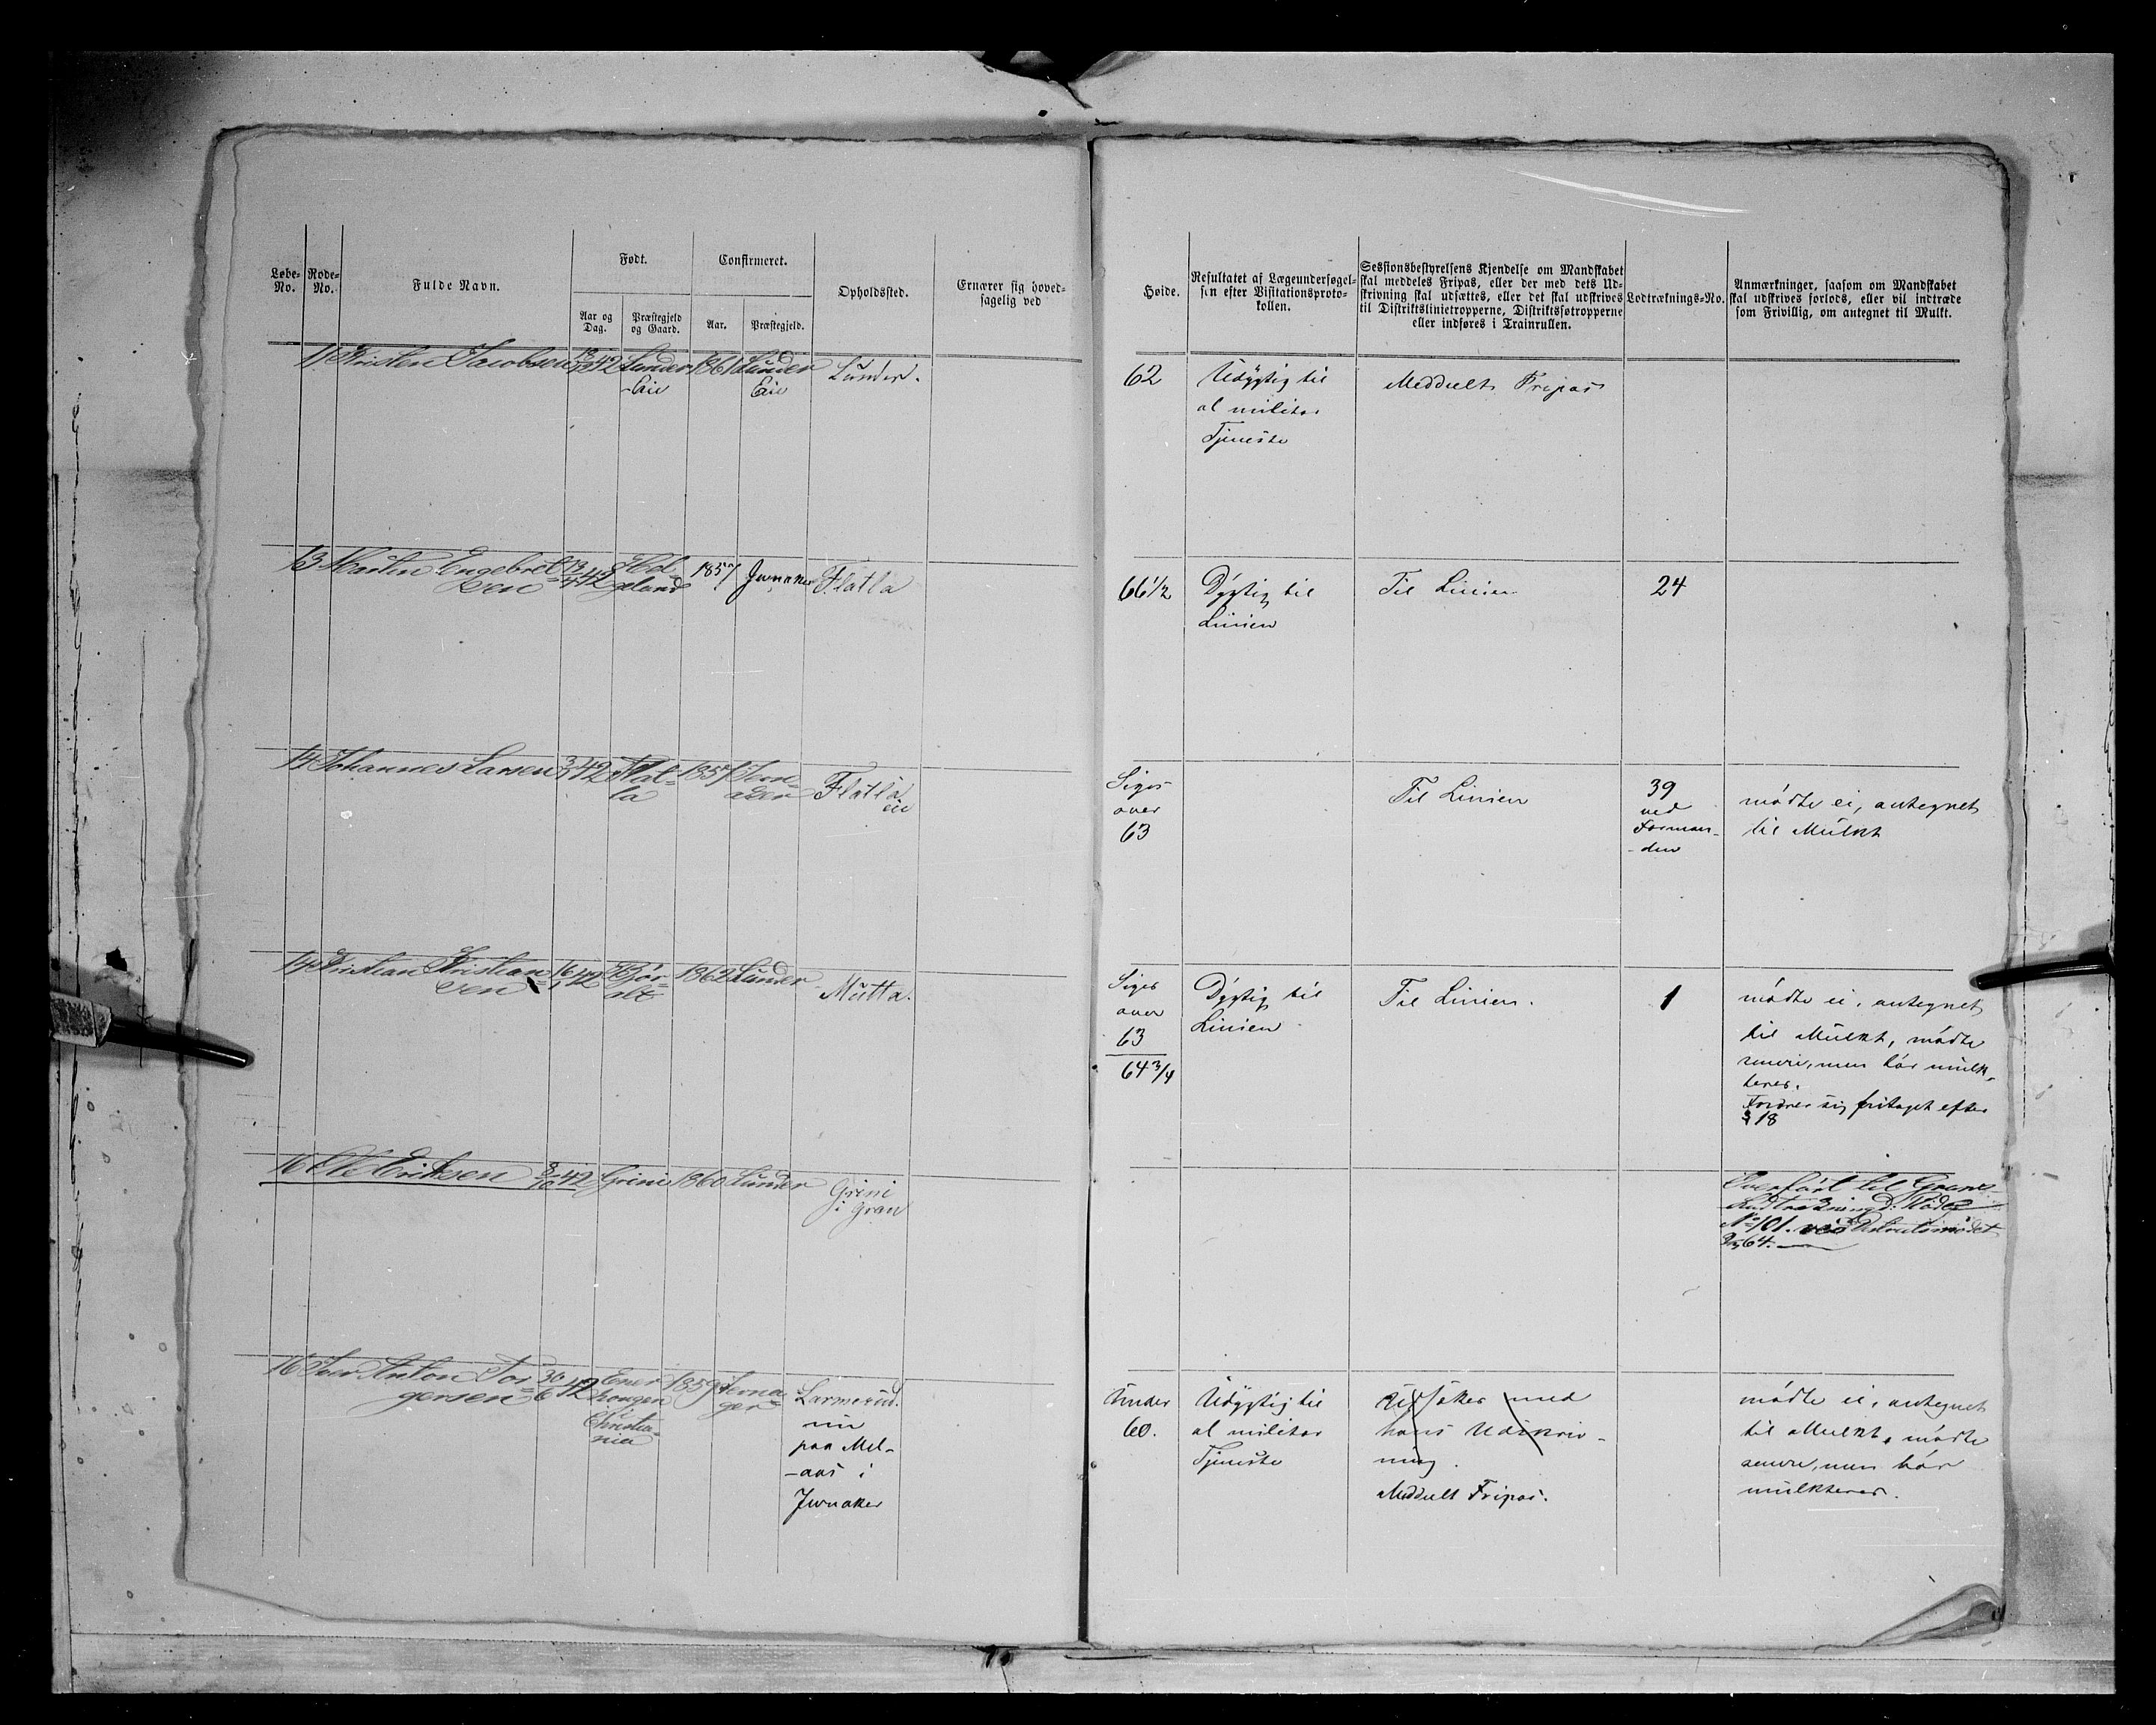 Løbe-No.
Rode-No.
Fulde Navn.
Født.
Aar og Dag.
Præstegjeld og Gaard.
Confirmeret.
Aar.
Præstegjeld.
Opholdssted.
Ernærer sig hoved-
sagelig ved
Høide.
Resultatet af Lægeundersøgel-
sen efter Visitationsproto-
kollen.
Sessionsbestyrelsens Kjendelse om Mandskabet
skal meddeles Fripas, eller der med dets Ud-
skrivning skal udsættes, eller det skal udskrives
til Distriktslinietropperne, Distriktsføtropperne
eller indføres i Trainrullen.
Lodtræknings-No.
Anmærkninger, saasom om Mandskabet
skal udskrives forlods, eller vil indtræde
som Frivillig, om antegnet til Mulkt.
11 Kristen Jacobsen 42 Lunder 1861 Lunder Lunder.
-Eie Eie
62 Udygtig til Meddelt Fripas
al militær
Tjeneste
13 Martin Engebret= 42 1857 Jevnaker Flatla
sen
66 1/2 Dygtig til Til Linien 24
Linien
14 Johannes Larsen 3/1 42 Flat= 1857 Jevn= Flatla
la aker eie
Siges Til Linien 39 mødte ei, antegnet
over ved til Mulkt
63 Forman-
-den
14 Kristian Kristian= 16/1 42 1862 Lunder Mutta.
sen
Siges Dygtig til Til Linien. 1 mødte ei, antegnet
over Linien til Mulkt, mødte
63 senere, men bør mulk-
64 3/4 teres.
Fordrer sig fritaget efter
§ 18
16 Ole Eriksen 8/10 42 Grini 1860 Lunder Grini
i Gran
Overført til Grans
No 101. ved
64.
16 Iver Anton Jør= 30/6 42 Ener 1859 Jevna
gersen hougen ger=
Christia=
nia
nu
paa Mel-
-aas i
Jevnaker
Under Udygtig til Udsættes med mødte ei, antegnet
60. al militær hans Udskriv- til Mulkt, mødte
Tjeneste ning. senere, men bør
Meddelt Fripas. mulkteres.